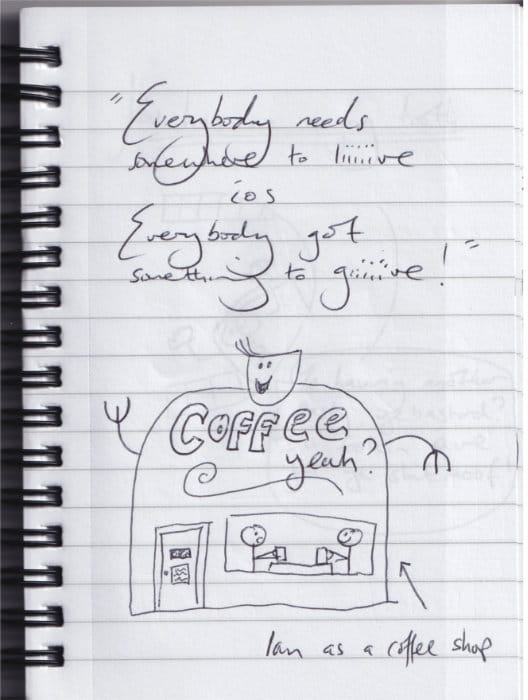 "Everybody needs
somewhere to liiiiive
cos
Everybody got
something to giiiiive!"
COFFEE
yeah?
Ian as a coffee shop